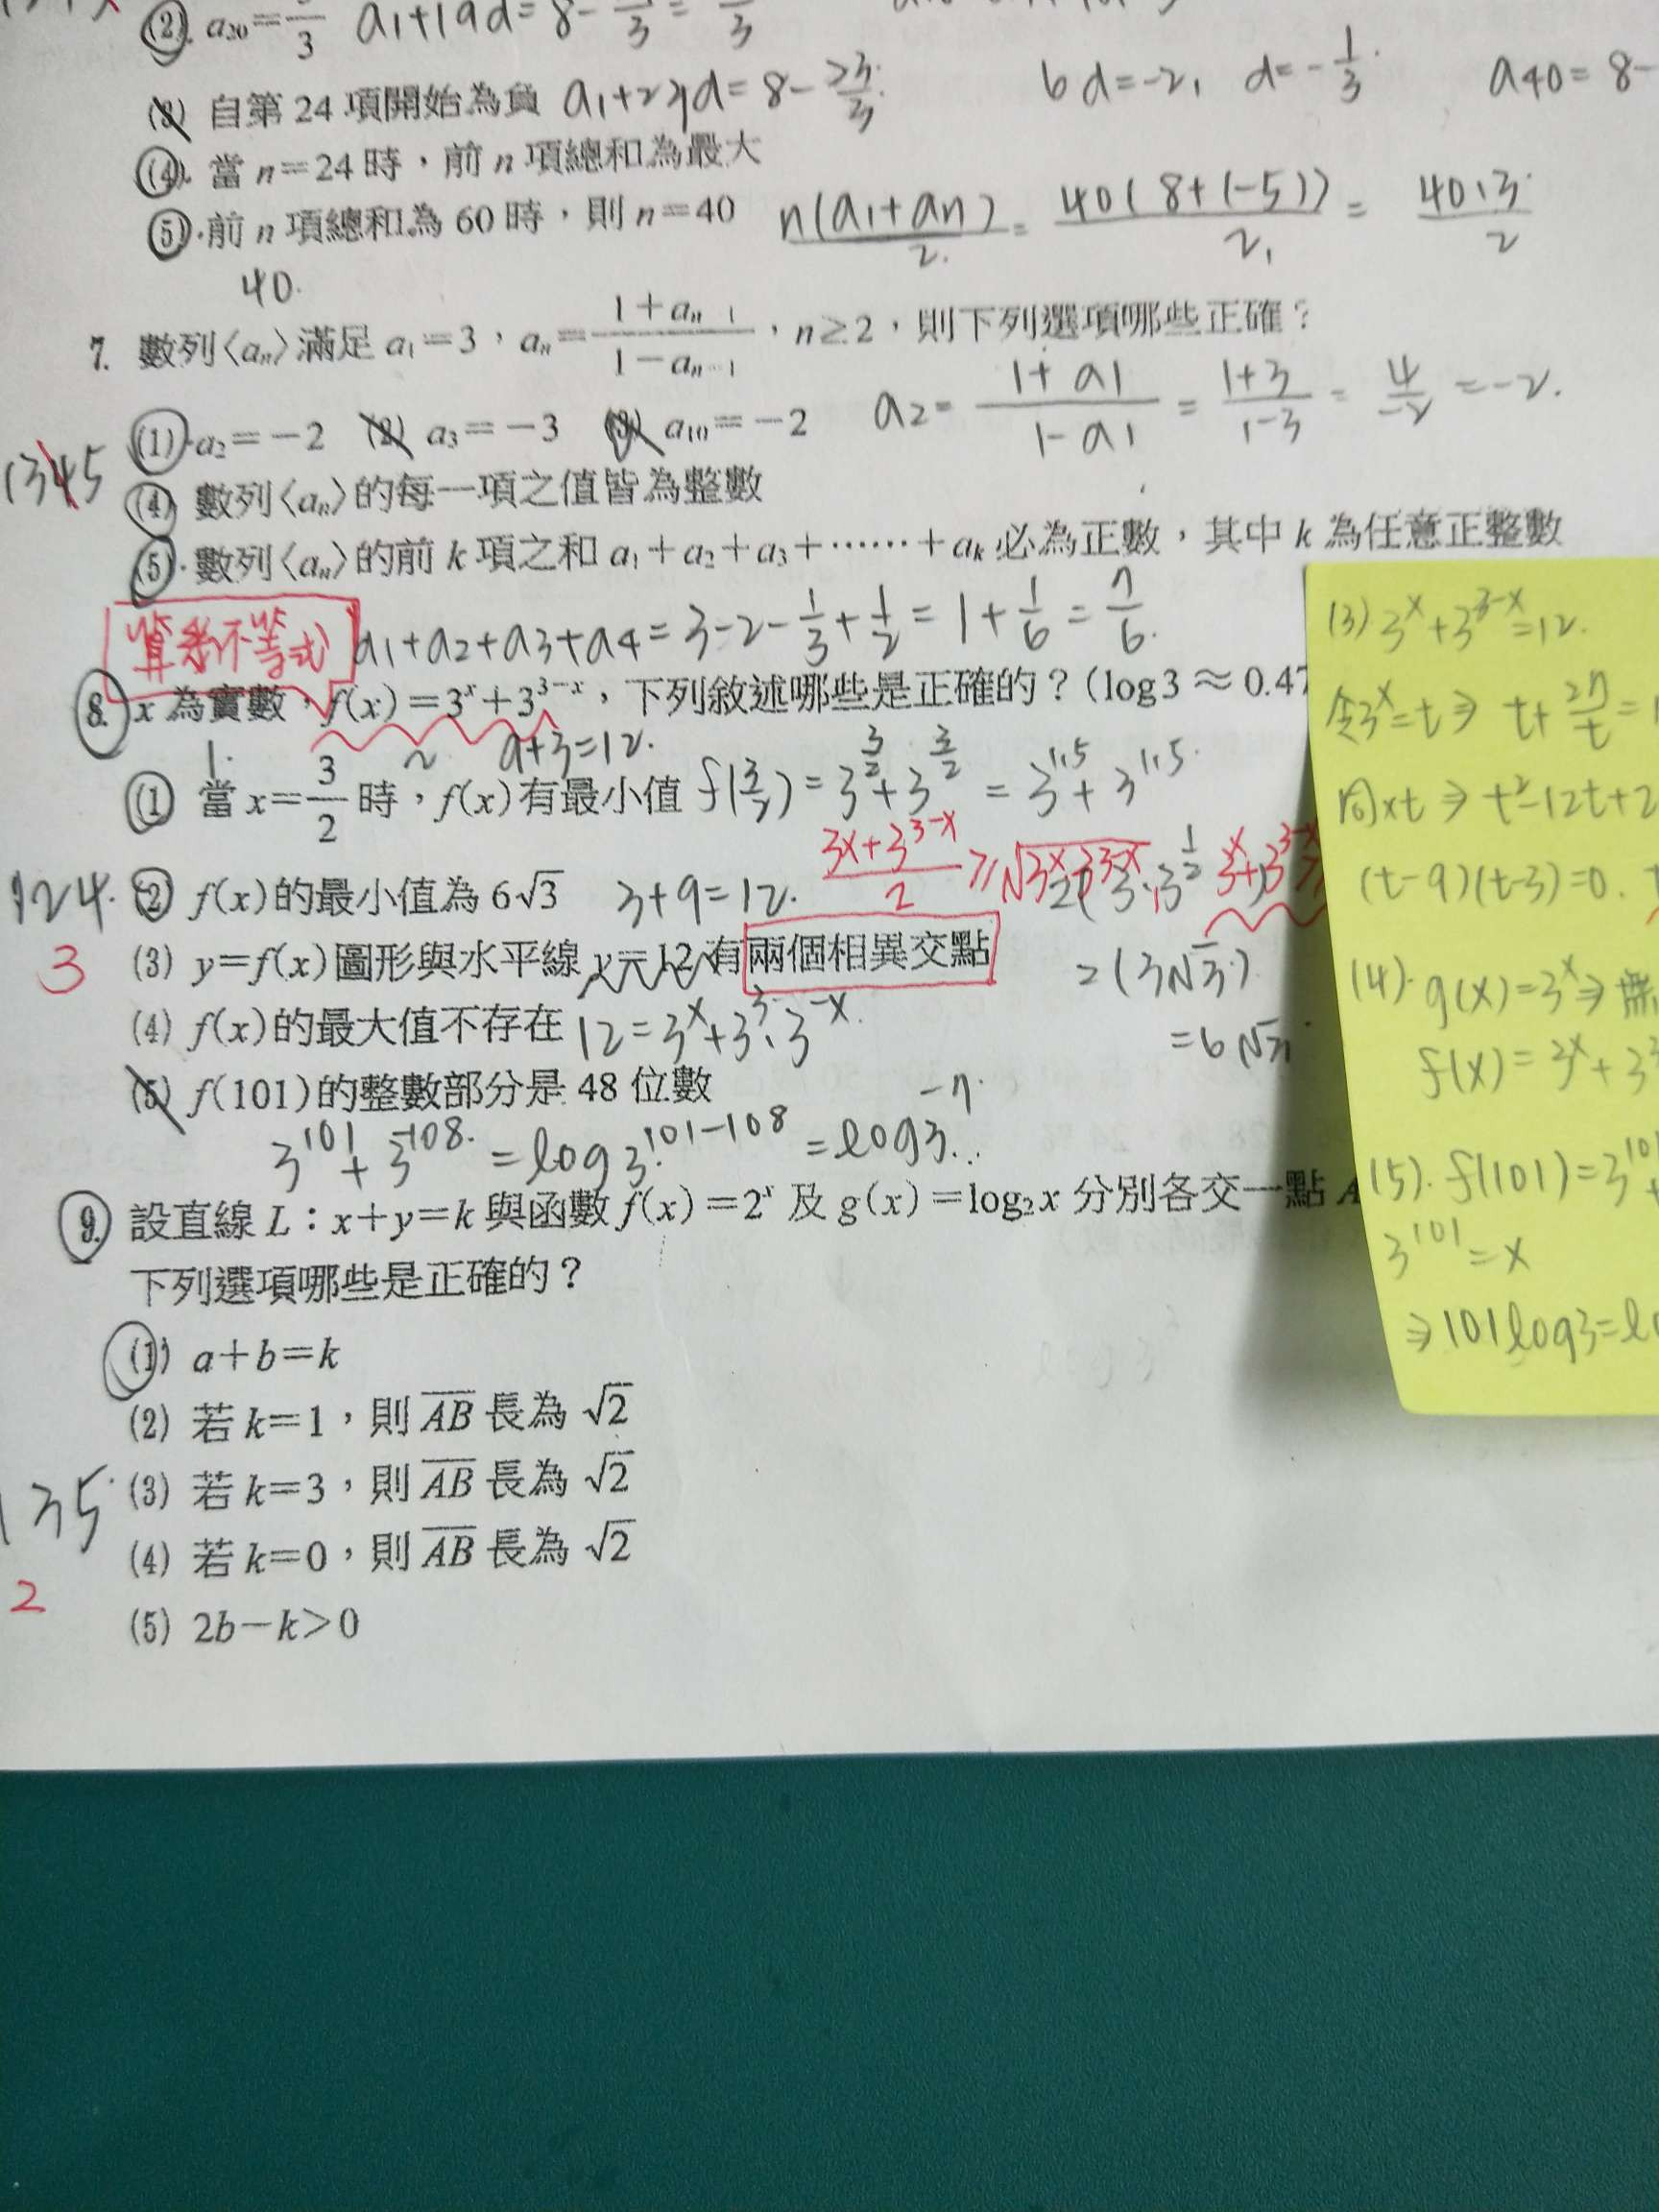 (2) a₂₀=—/3 a1+19d=8-—/3=—/3
(3) 自第 24 項開始為負 a1+23d=8-23/3. 6d=-2, d=-1/3. a40=8-
(4) 當 n=24 時,前 n 項總和為最大
(5) 前 n 項總和為 60 時,則 n=40 n(a1+an)/2 = 40(8+(-5))/2 = 40·3/2
40.
7. 數列〈aₙ〉滿足 a₁=3,aₙ=(1+aₙ₋₁)/(1-aₙ₋₁),n≥2,則下列選項哪些正確?
(1) a₂=-2 (2) a₃=-3 (3) a₁₀=-2 a2=(1+a1)/(1-a1)=(1+3)/(1-3)=4/-2=-2.
1345
(4) 數列〈aₙ〉的每一項之值皆為整數
(5) 數列〈aₙ〉的前 k 項之和 a₁+a₂+a₃+……+aₖ 必為正數,其中 k 為任意正整數
算幾不等式 a1+a2+a3+a4=3-2-1/3+1/2=1+1/6=7/6.
8. x 為實數,f(x)=3ˣ+3³⁻ˣ,下列敘述哪些是正確的?(log3≈0.47
9+3=12.
(1) 當 x=3/2 時,f(x)有最小值 f(3/2)=3^(3/2)+3^(3/2)=3^1.5+3^1.5
(3x+3^(3-x))/2≥√(3^x·3^(3-x))
124.
(2) f(x)的最小值為 6√3 3+9=12.
3
(3) y=f(x)圖形與水平線 y=12 有兩個相異交點 =(3√3)
(4) f(x)的最大值不存在 12=3^x+3^3·3^-x. =6√3
(5) f(101)的整數部分是 48 位數
3^101+3^-108.=log3^101-108=log3^-7
9. 設直線 L:x+y=k 與函數 f(x)=2ˣ 及 g(x)=log₂x 分別各交一點 A
下列選項哪些是正確的?
(1) a+b=k
(2) 若 k=1,則 AB 長為 √2
135
(3) 若 k=3,則 AB 長為 √2
(4) 若 k=0,則 AB 長為 √2
2
(5) 2b-k>0
(3) 3^x+3^(3-x)=12.
令3^x=t⇒ t+27/t=
同×t⇒t²-12t+2
(t-9)(t-3)=0.
(4). g(x)=3^x⇒無
f(x)=3^x+3
(5). f(101)=3^101+
3^101=x
⇒101log3=lo